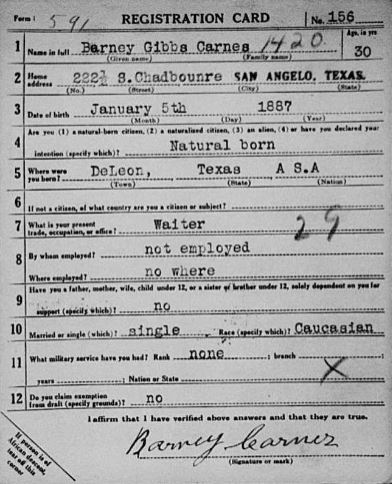 Form 1 591 REGISTRATION CARD No. 156
1 Name in full Barney Gibbs Carnes 1420 Age, in yrs
(Given name) (Family name) 30
2 Home address 222½ S.Chadbounre SAN ANGELO, TEXAS.
(No.) (Street) (City) (State)
3 Date of birth January 5th 1887
(Month) (Day) (Year)
Are you (1) a natural-born citizen, (2) a naturalized citizen, (3) an alien, (4) or have you declared your
4 intention (specify which)? Natural born
5 Where were you born? DeLeon, Texas A S.A
(Town) (State) (Nation)
6 If not a citizen, of what country are you a citizen or subject?
7 What is your present trade, occupation, or office? Waiter 29
8 By whom employed? not employed
Where employed? no where
Have you a father, mother, wife, child under 12, or a sister or brother under 12, solely dependent on you for
9 support (specify which)? no
10 Married or single (which)? single Race (specify which)? Caucasian
11 What military service have you had? Rank none ; branch
years ; Nation or State X
12 Do you claim exemption from draft (specify grounds)? no
I affirm that I have verified above answers and that they are true.
Barney Carnes
(Signature or mark)
If person is of
African descent,
tear off this
corner